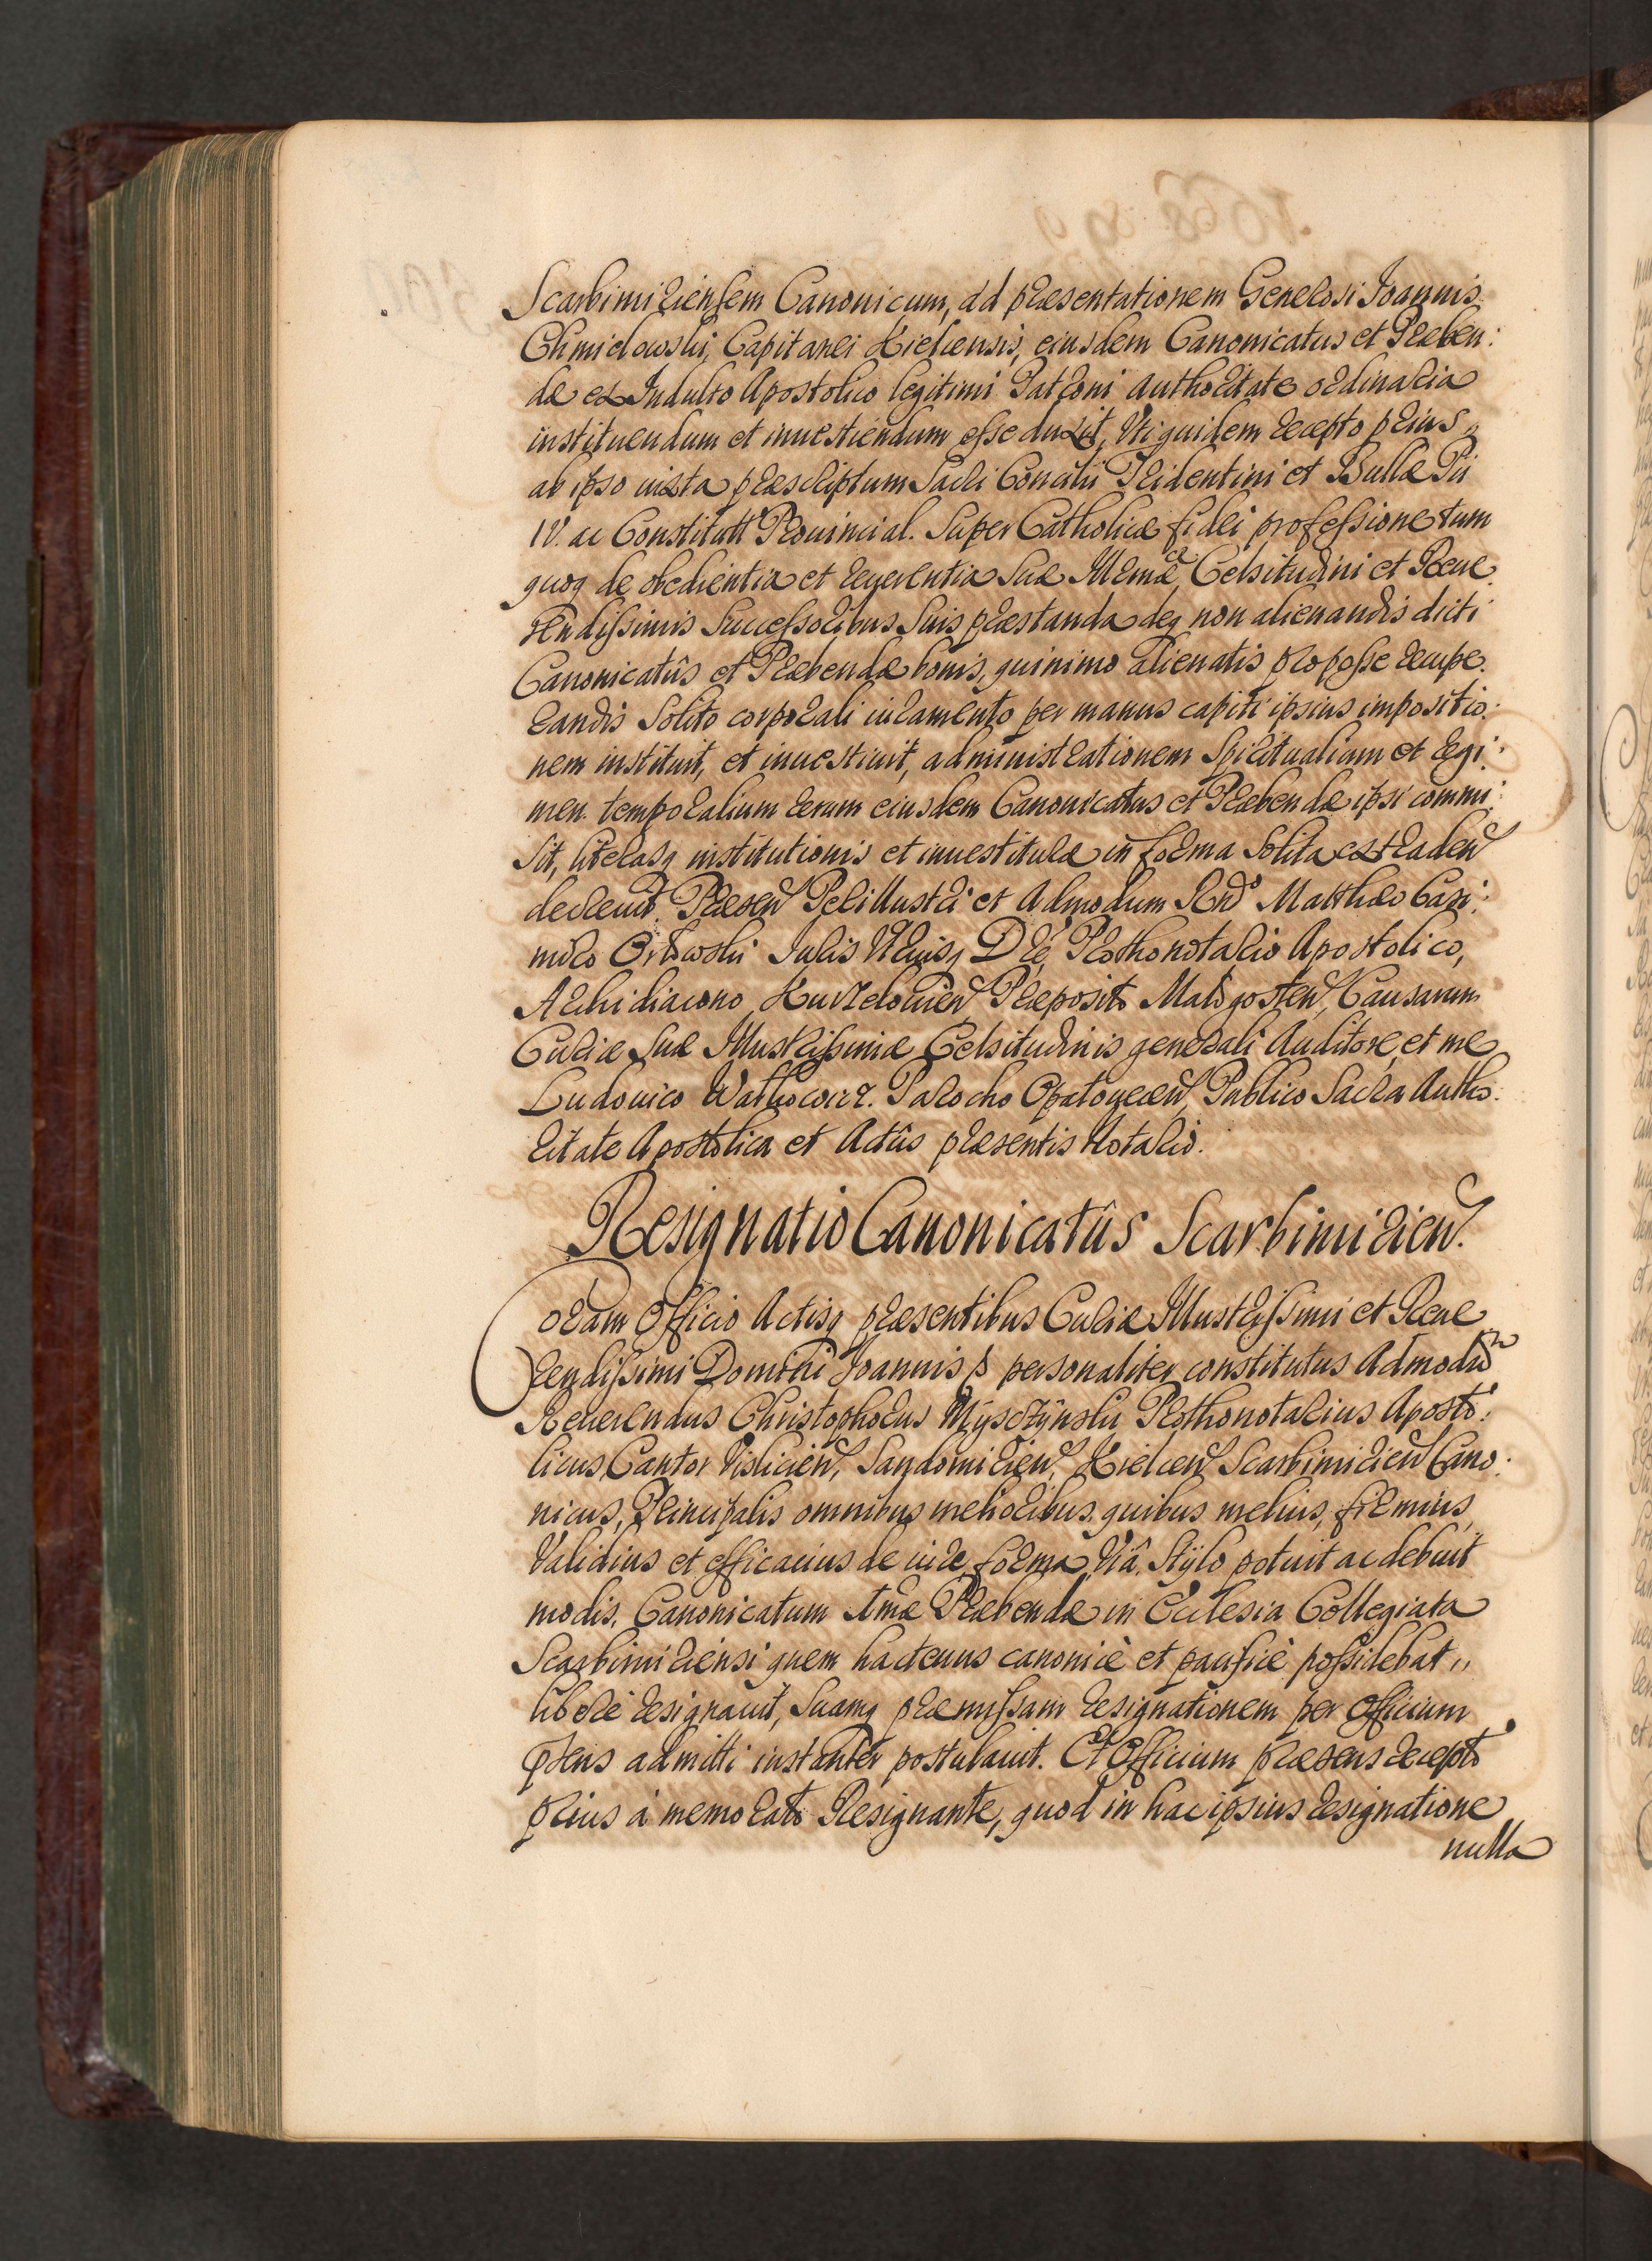 Scarbimiriensem Canonicum, ad præsentationem Generosi Joannis
Chmielowski, Capitanei Kielcensis, eiusdem Canonicatus et Præben:
dæ ex Indulto Apostolico legitimi Patroni authoritate ordinaria
instituendum et inuestiendum esse duxit, Vti quidem recepto prius
ab ipso iuxta præscriptum Sacri Concilii Tridentini et Bullæ Pii
IV. ac Constitutt Prouincial. Super Catholicæ fidei professione tum
quoq de obedientia et reuerentia Suæ Illmæ Celsitudini et Reue
rendissimis Successoribus Suis præstanda deq non alienandis dicti
Canonicatûs et Præbendæ bonis, quinimo alienatis pro posse recupe
randis Solito corporali iuramento per manus capiti ipsius impositio:
nem instituit, et inuestiuit, administrationem Spiritualium et regi:
men temporalium rerum eiusdem Canonicatus et Præbendæ ipsi commi:
sit, literasq institutionis et inuestituræ in forma Solita extraden
decreuit. Præsen Perillustri et Admodum Rndo Matthæo Casi:
miro Orłowski Iuris Vtriusq Dre, Prothonotario Apostolico,
Archidiacono Kurzelouien Præposito Małogosten, Causarum
Curiæ Suæ Illustrissimæ Celsitudinis generali Auditore, et me
Ludouico Parocho Opatouecen, Publico Sacra Autho:
ritate Apostolica et Actûs præsentis Notario.
Resignatio Canonicatûs Scarbimirien.
Coram Officio Actisq præsentibus Curiæ Illustrissimi et Reue
rendissimi Domini Joannis personaliter constitutus Admodum
Reuerendus Christophorus Mysczÿnski Prothonotarius Aposto:
licus, Cantor Vislicien, Sandomirien, Kielcen Scarbimirien Cano:
nicus, Principalis omnibus melioribus, quibus melius, firmius,
Validius et efficacius de iure, forma, Viâ, Stÿlo potuit ac debuit
modis, Canonicatum Præbendæ in Ecclesia Collegiata
Scarbimiriensi quem hactenus canonicè et pacificè possidebat,
liberè resignauit, Suamq præmissam resignationem per Officium
pñens admitti instanter postulauit. Et Officium præsens recepto
prius à memorato Resignante, quod in hac ipsius resignatione
nulla